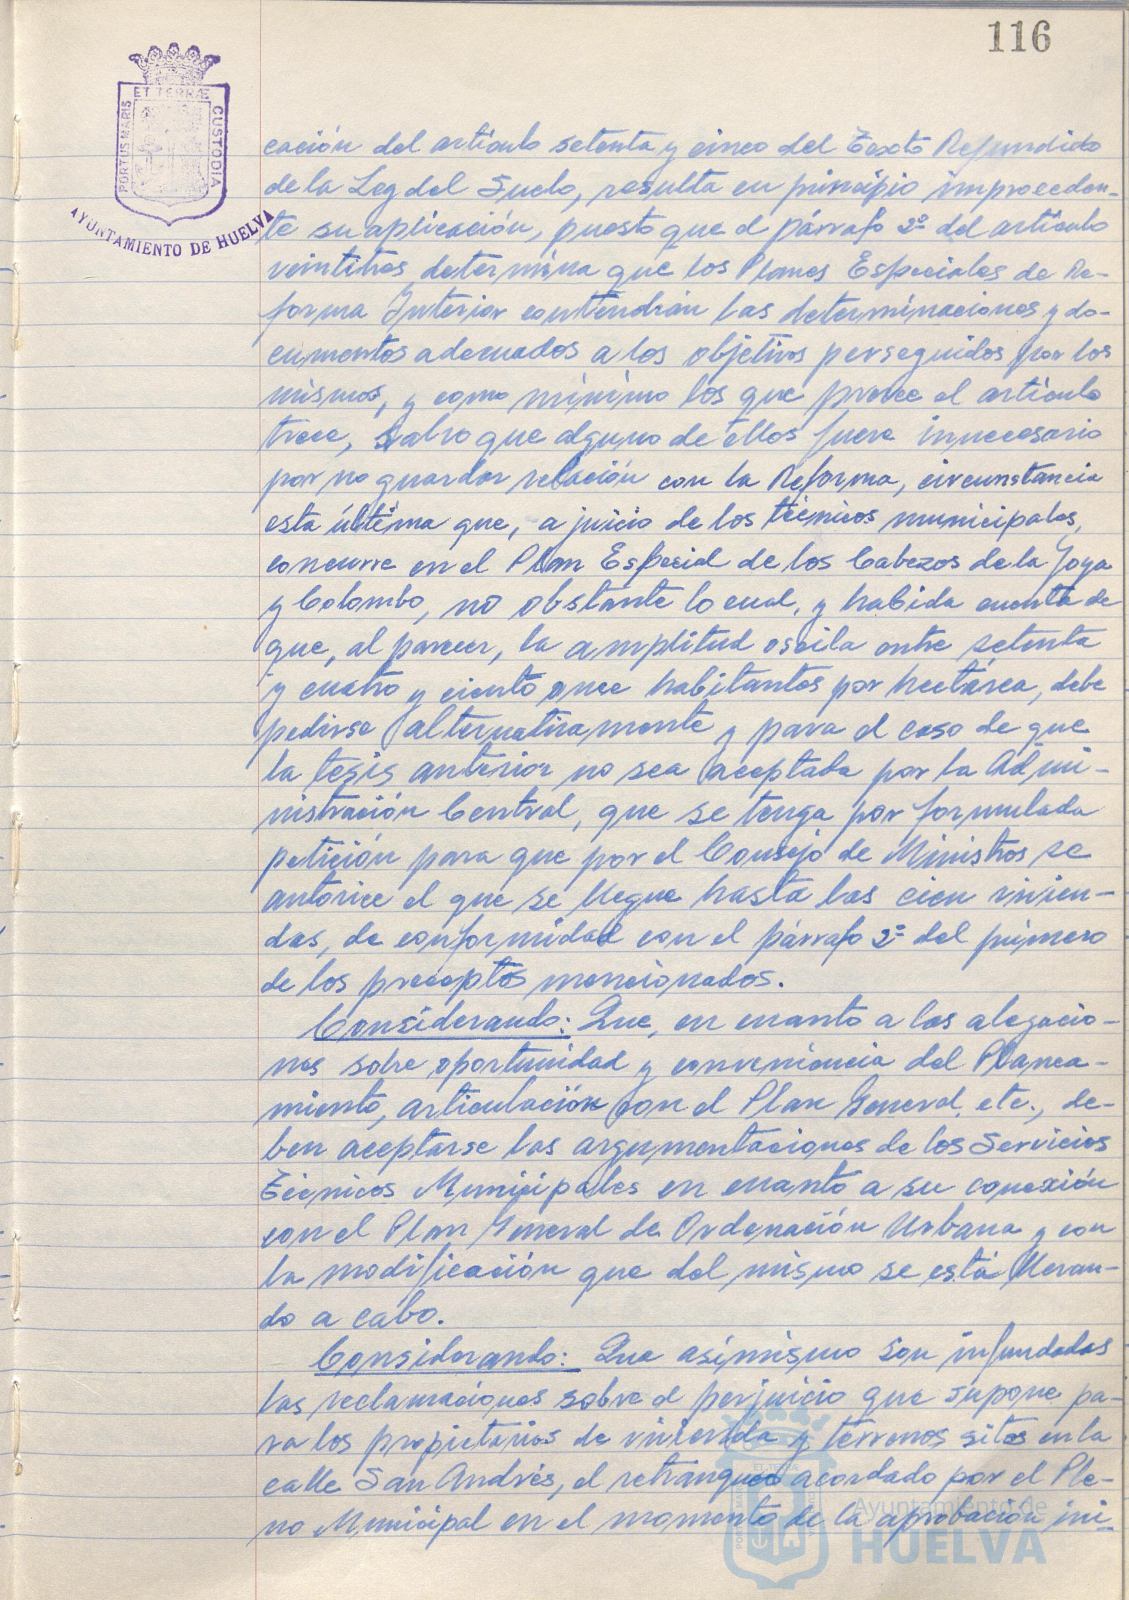 116
ET TERRÆ
PORTUS MARIS
CUSTODIA
AYUNTAMIENTO DE HUELVA
cación del artículo setenta y cinco del Texto Refundido
de la Ley del Suelo, resulta en principio improceden-
te su aplicación, puesto que el párrafo 2º del artículo
veintitres determina que los Planes Especiales de Re-
forma Interior contendrán las determinaciones y do-
cumentos adecuados a los objetivos perseguidos por los
mismos, y como mínimo los que prevee el artículo
trece, salvo que alguno de ellos fuera innecesario
por no guardar relación con la Reforma, circunstancia
esta última que, a juicio de los técnicos municipales,
concurre en el Plan Especial de los Cabezos de la Joya
y Colombo, no obstante lo cual, y habida cuenta de
que, al parecer, la amplitud oscila entre setenta
y cuatro y ciento once habitantes por hectárea, debe
pedirse alternativamente y para el caso de que
la tesis anterior no sea aceptada por la Admi-
nistración Central, que se tenga por formulada
petición para que por el Consejo de Ministros se
autorice el que se llegue hasta las cien vivien-
das, de conformidad con el párrafo 2º del primero
de los preceptos mencionados.
Considerando: Que, en cuanto a las alegacio-
nes sobre oportunidad y conveniencia del Planea-
miento, articulación con el Plan General, etc., de-
ben aceptarse las argumentaciones de los Servicios
Técnicos Municipales en cuanto a su conexión
con el Plan General de Ordenación Urbana y con
la modificación que del mismo se está llevan-
do a cabo.
Considerando: Que asimismo son infundadas
las reclamaciones sobre el perjuicio que supone pa-
ra los propietarios de vivienda y terrenos sitos en la
calle San Andrés, el retranqueo acordado por el Ple-
no Municipal en el momento de la aprobación ini-
Ayuntamiento de
HUELVA